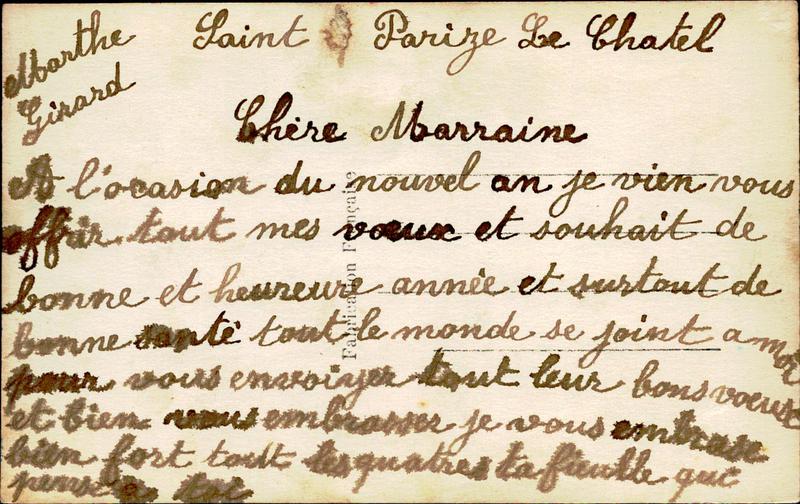 Marthe
Girard
Saint Parize Le Chatel
Chère Marraine
A l'ocasion du nouvel an je vien vous
offrir tout mes voeux et souhait de
bonne et heureure année et surtout de
bonne santé tout le monde se joint a moi
pour vous envoiyer tout leur bons voeux
et bien vous embrasser je vous embrasse
bien fort tout les quatres ta fieulle qui
pense a toi
Fabrication Française